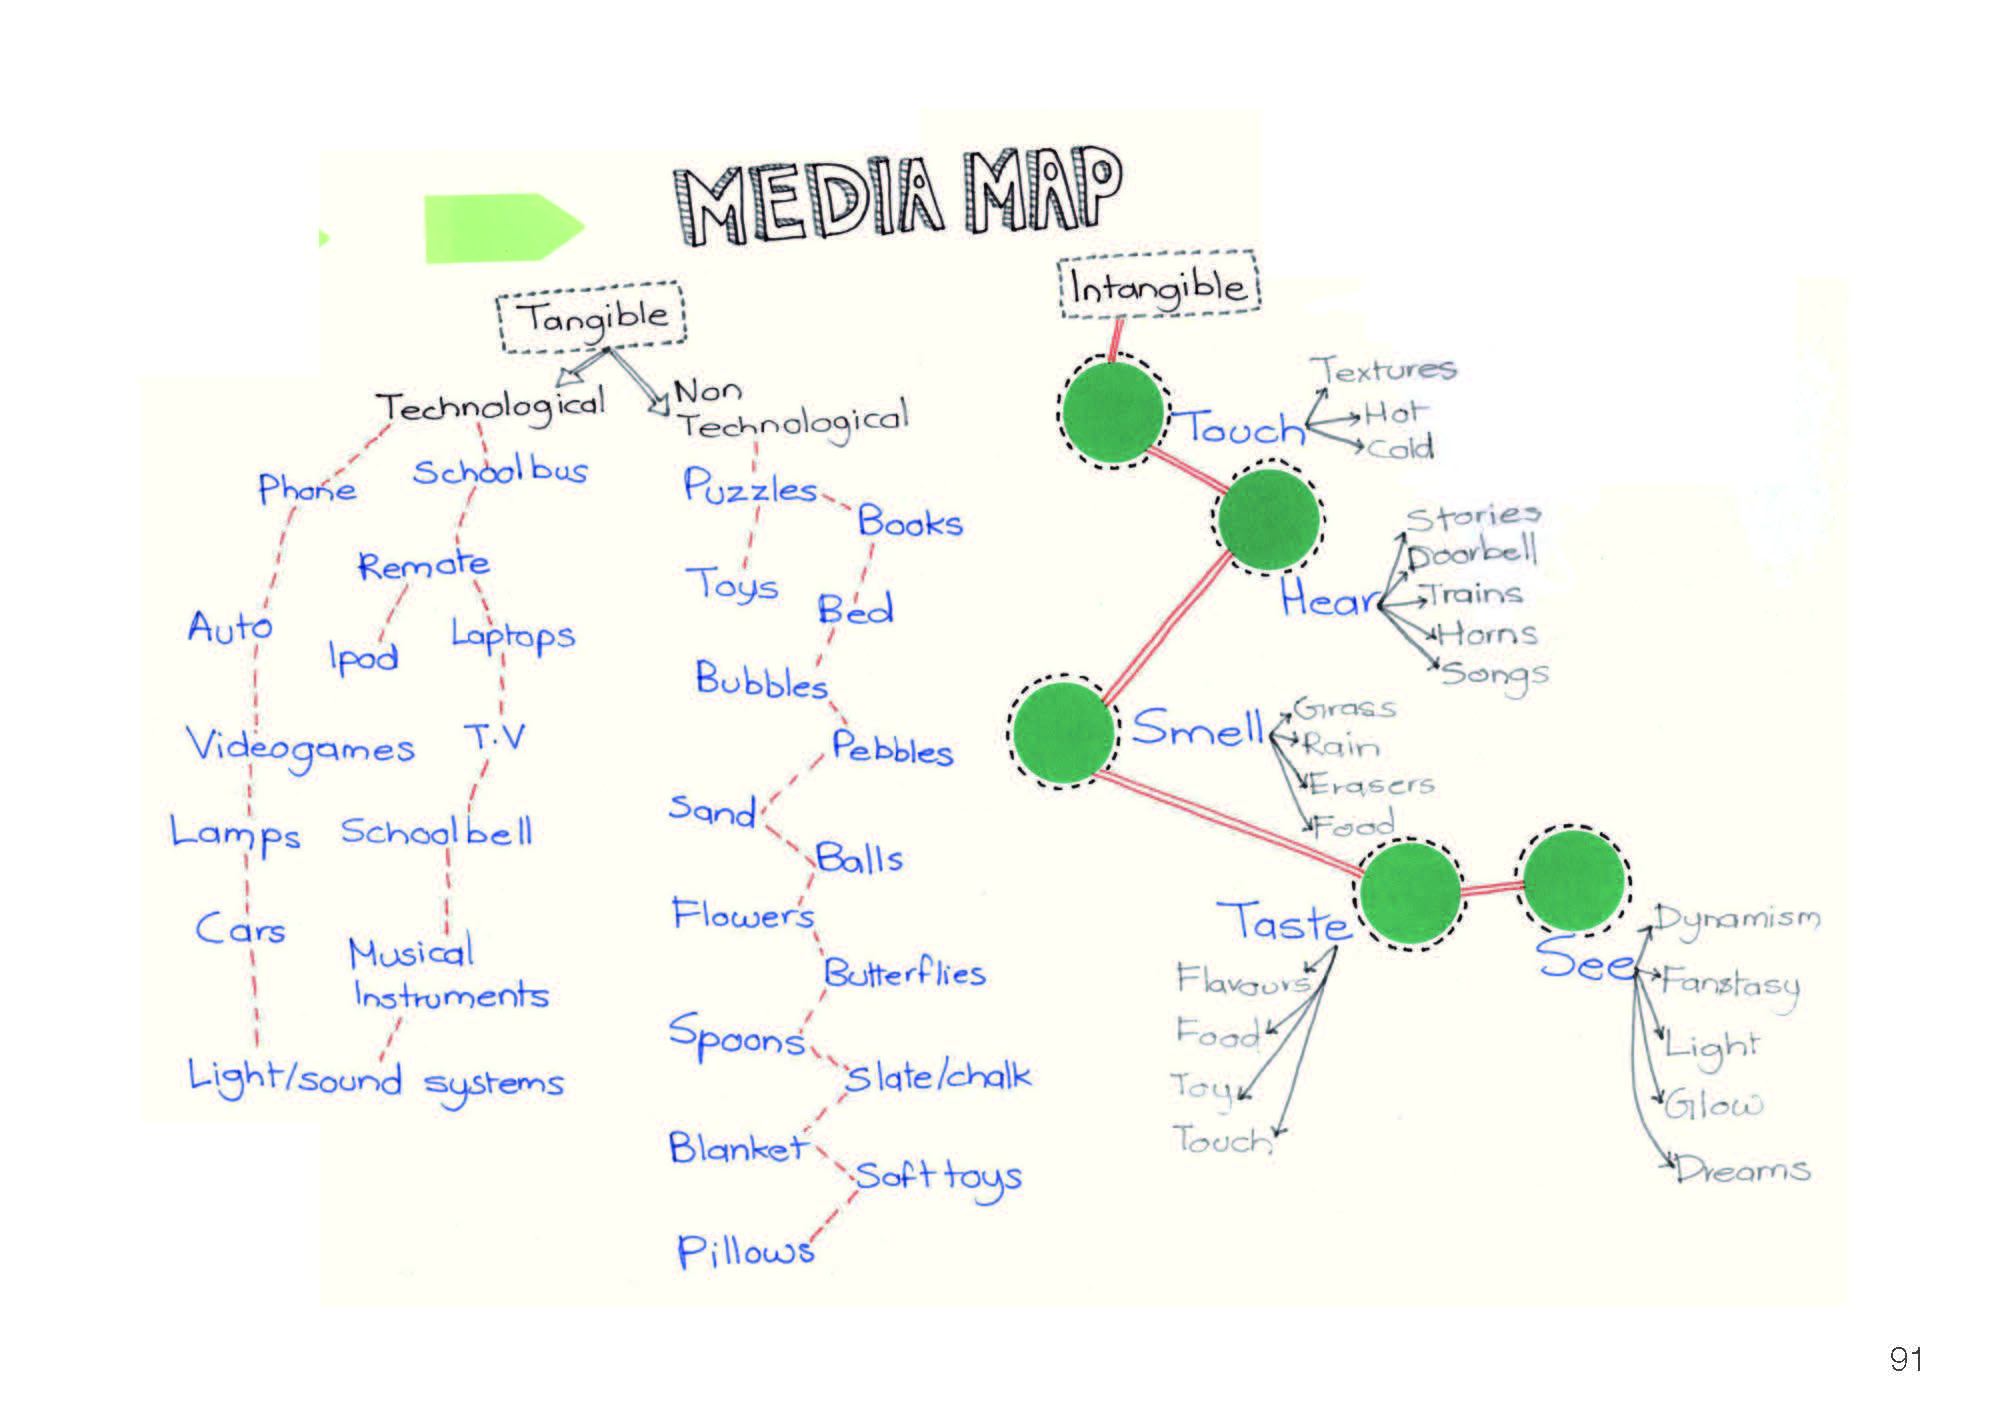 MEDIA MAP
Tangible
Technological
Phone
Schoolbus
Remote
Auto
Ipod
Laptops
Videogames
T.V
Lamps
Schoolbell
Cars
Musical
Instruments
Light/sound systems
Non
Technological
Puzzles
Books
Toys
Bed
Bubbles
Pebbles
Sand
Balls
Flowers
Butterflies
Spoons
Slate/chalk
Blanket
Soft toys
Pillows
Intangible
Touch
Textures
Hot
Cold
Hear
Stories
Doorbell
Trains
Horns
Songs
Smell
Grass
Rain
Erasers
Food
Taste
Flavours
Food
Toy
Touch
See
Dynamism
Fanstasy
Light
Glow
Dreams
91